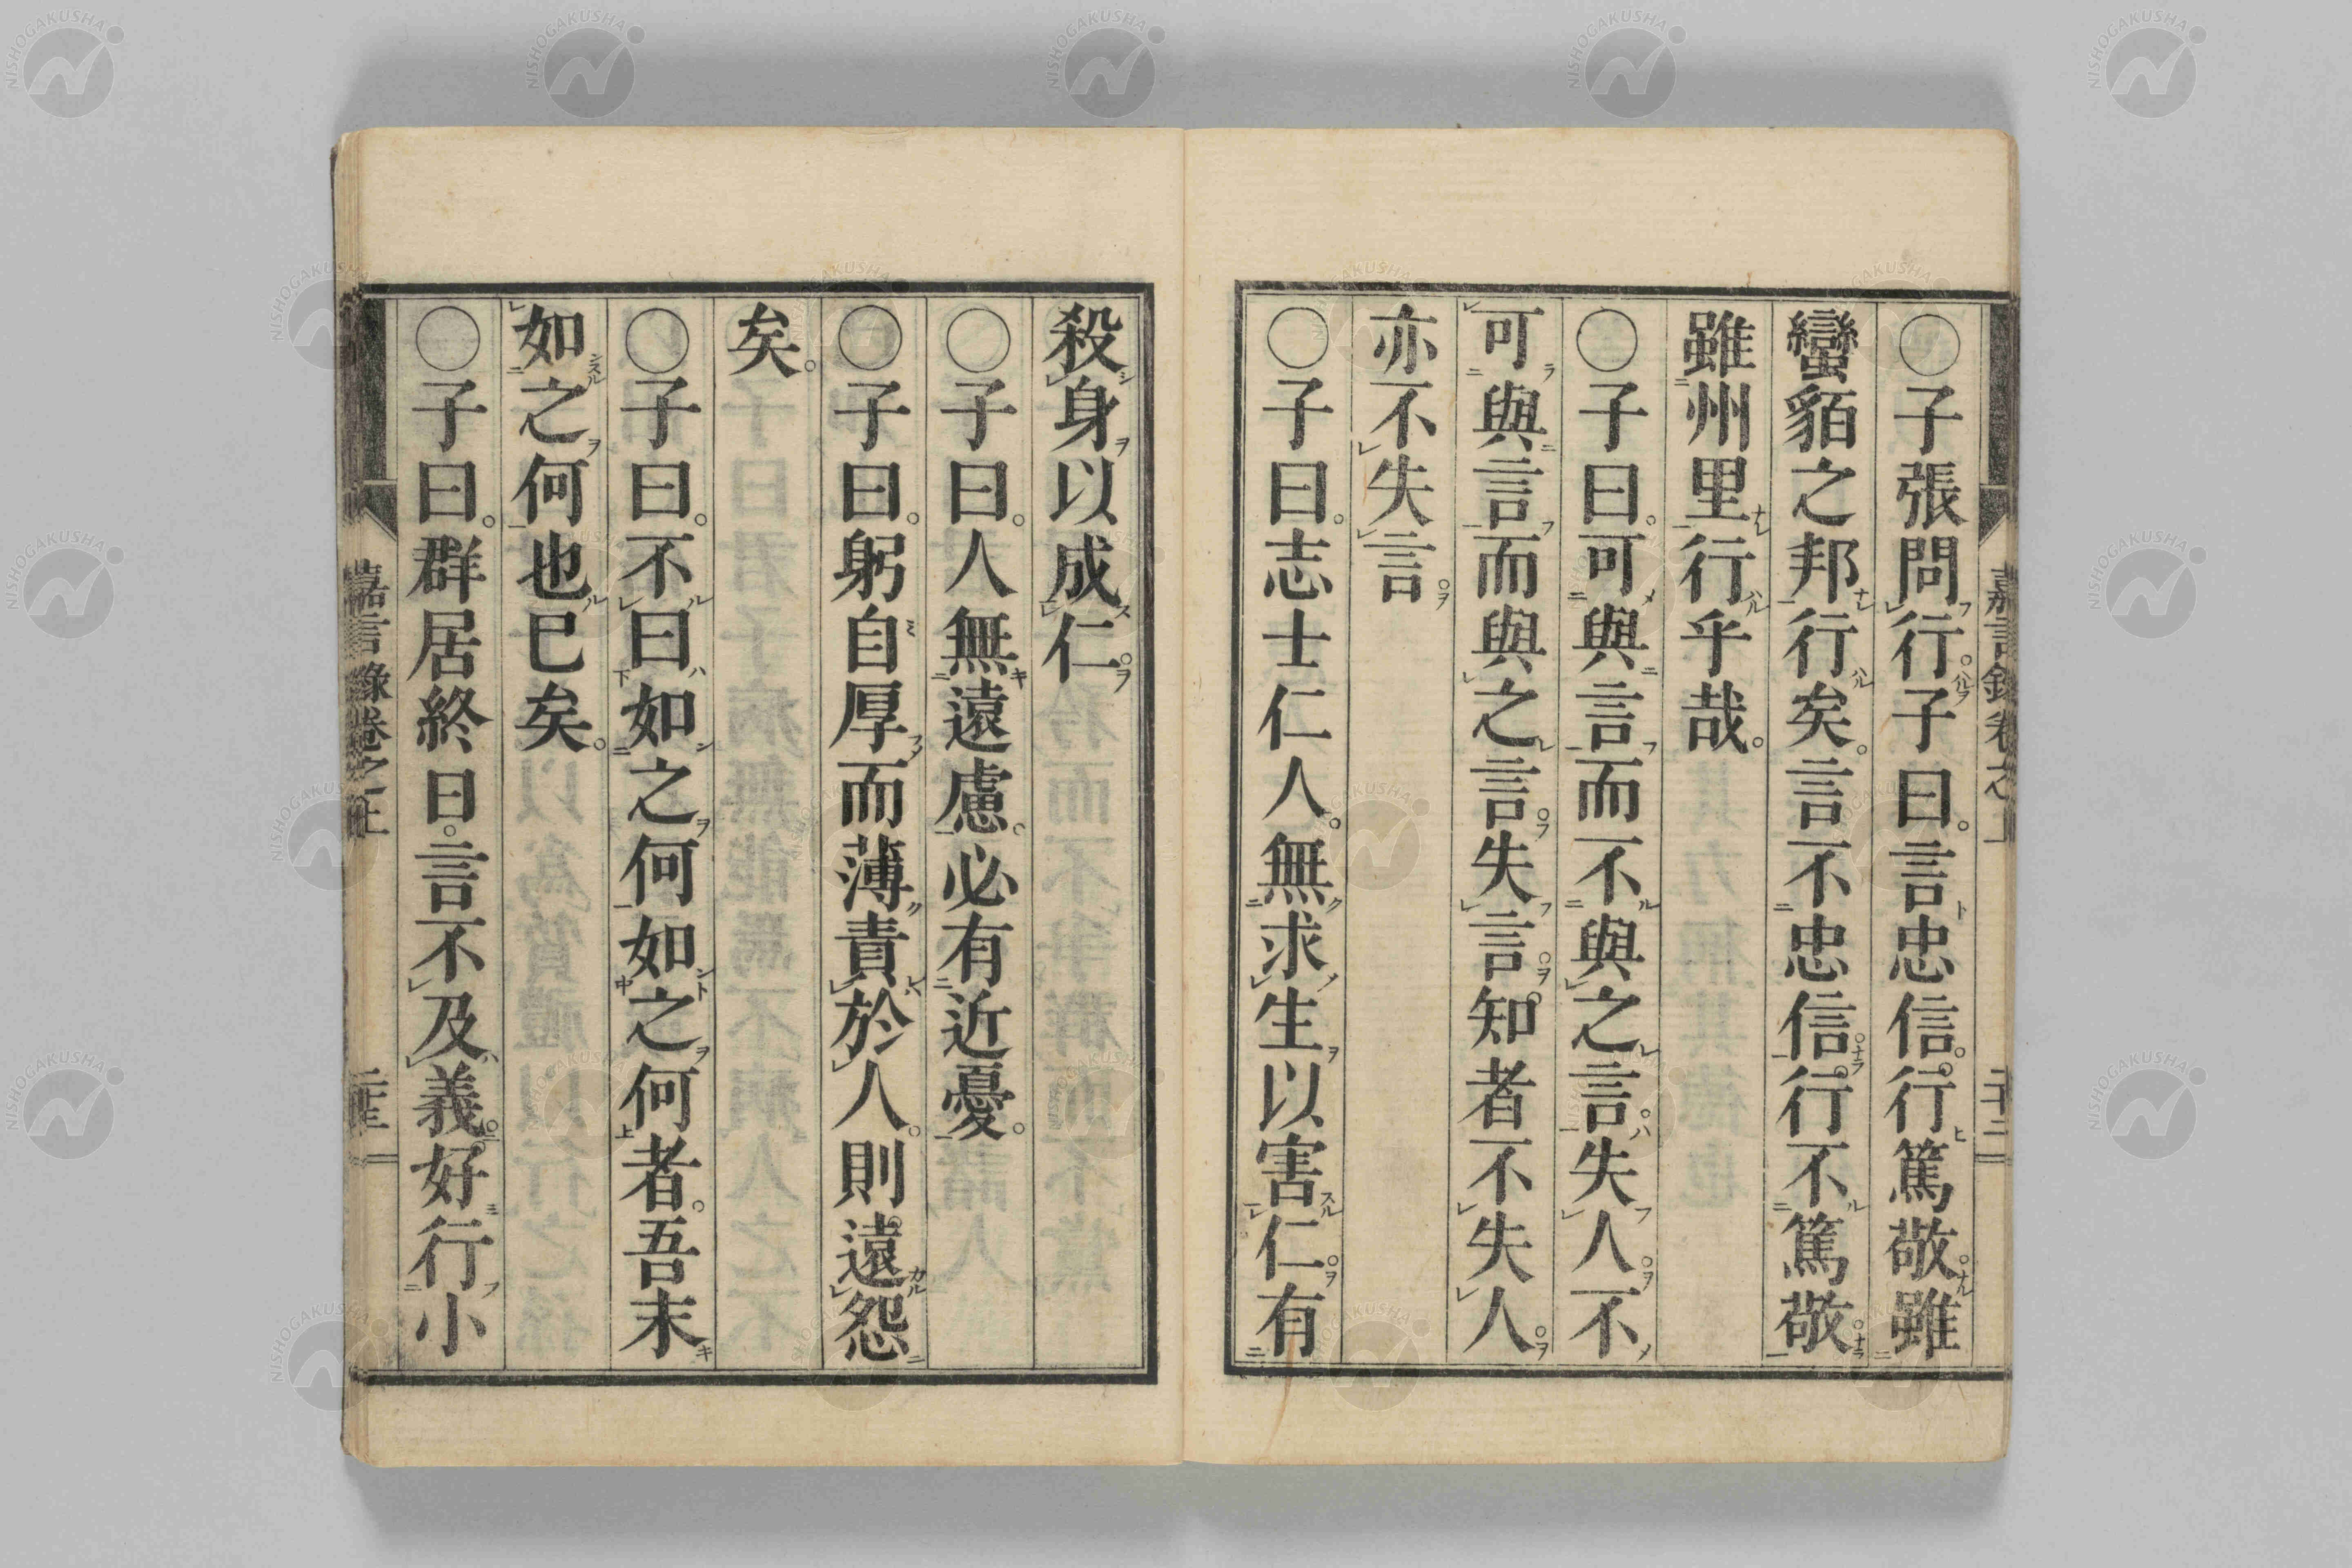 〇子張問行子曰言忠信行篤敬雖
蠻貊之邦行矣言不忠信行不篤敬
雖州里行乎哉
〇子曰可與言而不與之言失人不
可與言而與之言失言知者不失人
亦不失言
〇子曰志士仁人無求生以害仁有
殺身以成仁
〇子曰人無遠慮必有近憂
〇子曰躬自厚而薄責於人則遠怨
矣
〇子曰不曰如之何如之何者吾末
如之何也巳矣
〇子曰群居終日言不及義好行小
嘉言錄卷之上
NISHOGAKUSHA